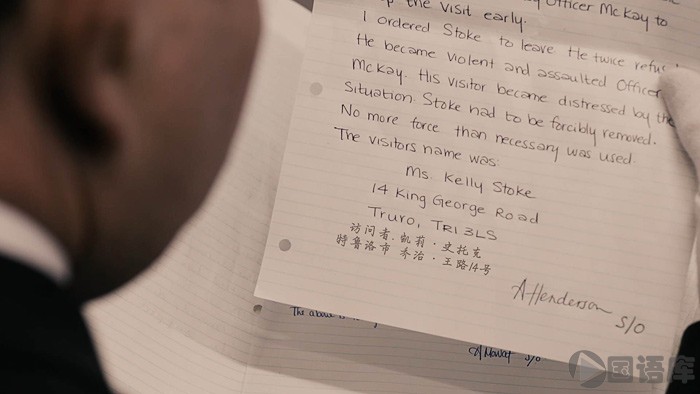 the visit early.
Officer McKay to
I ordered Stoke to leave. He twice
He became violent and assaulted Officer
McKay. His visitor became distressed by the
Situation. Stoke had to be forcibly removed.
No more force than necessary was used.
The visitors name was:
Ms. Kelly Stoke
14 King George Road
Truro, TR1 3LS
访问者.凯莉·史托克
特鲁洛市 乔治·王路14号
A Henderson S/O
The above is
S/O
国语库